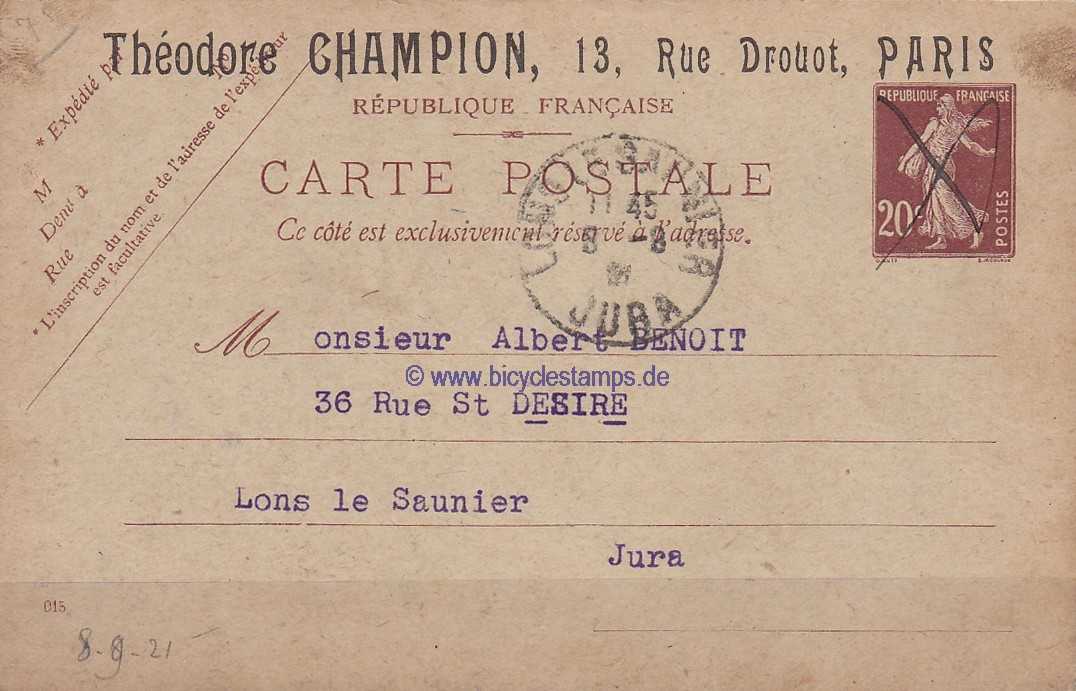 Théodore CHAMPION, 13, Rue Drouot, PARIS
* Expédié par
M
Demt à
Rue
* L'inscription du nom et de l'adresse de l'expéditeur
est facultative.
RÉPUBLIQUE FRANÇAISE
CARTE POSTALE
Ce côté est exclusivement réservé à l'adresse.
RÉPUBLIQUE FRANÇAISE
20c
POSTES
11 45
JURA
Monsieur Albert BENOIT
© www.bicyclestamps.de
36 Rue St DESIRE
Lons le Saunier
Jura
015
8-9-21